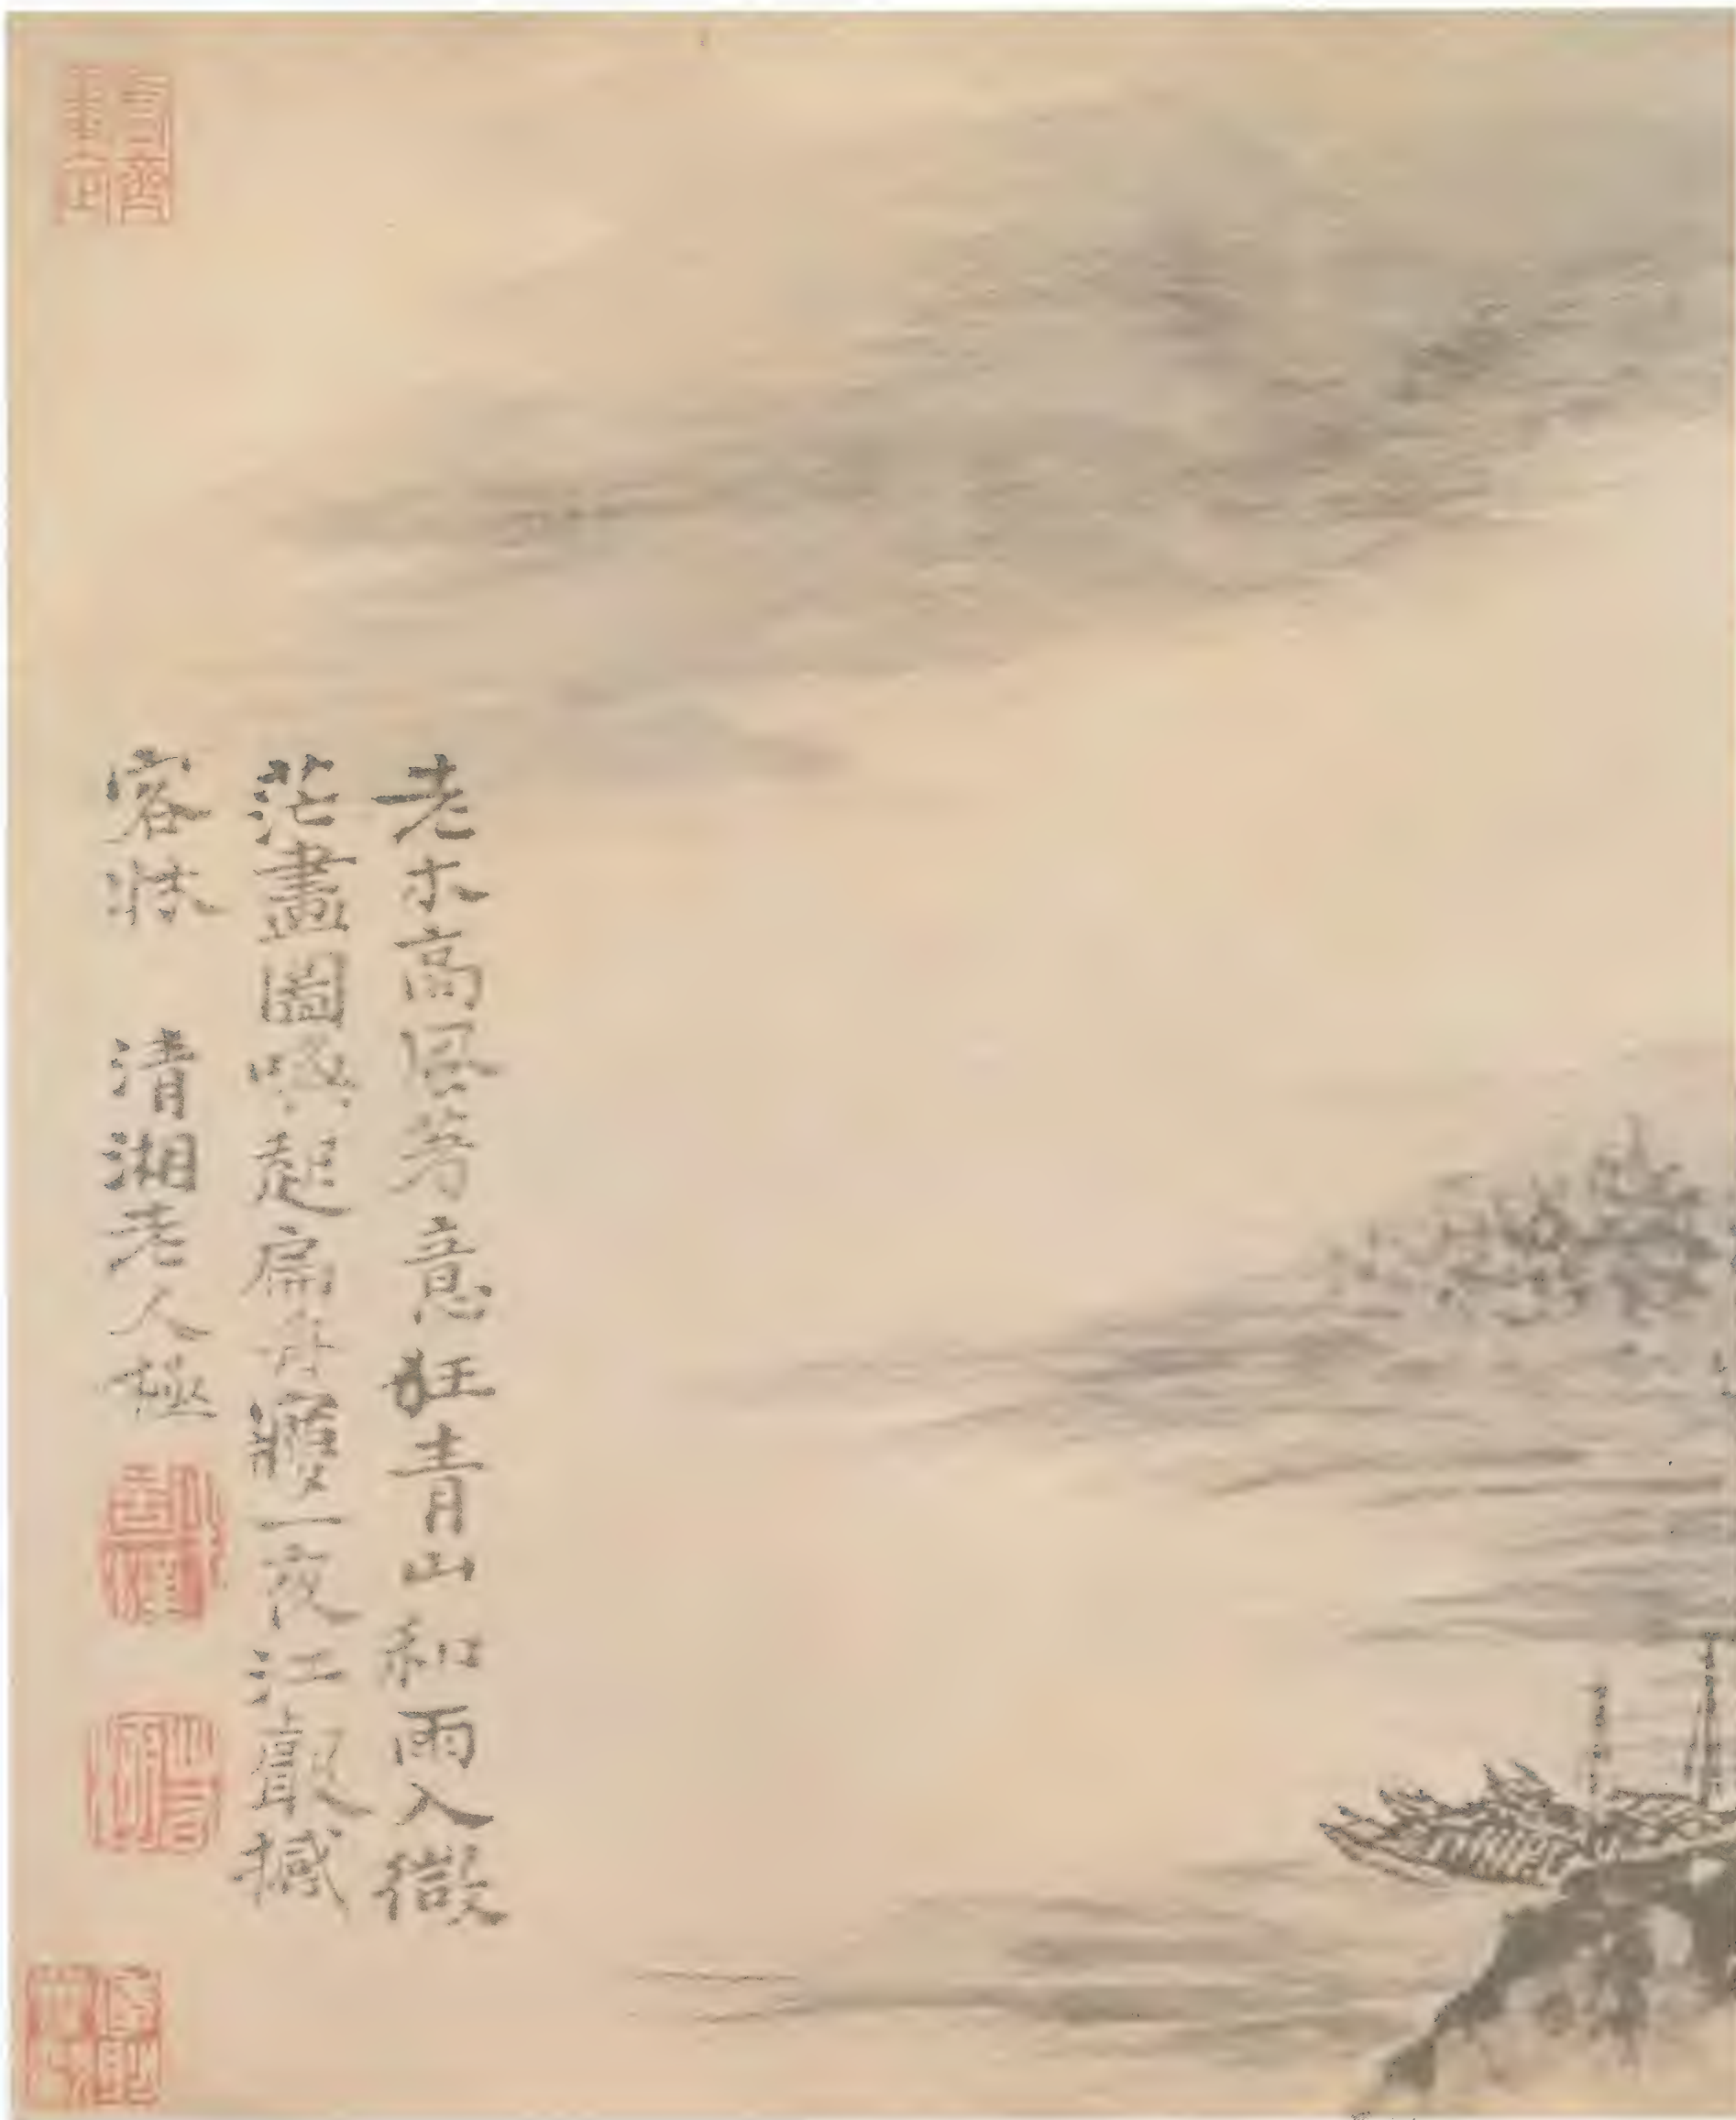 老木高風著意狂青山和雨入微
茫畫圖喚起扁舟夢一夜江聲撼
客牀　清湘老人極